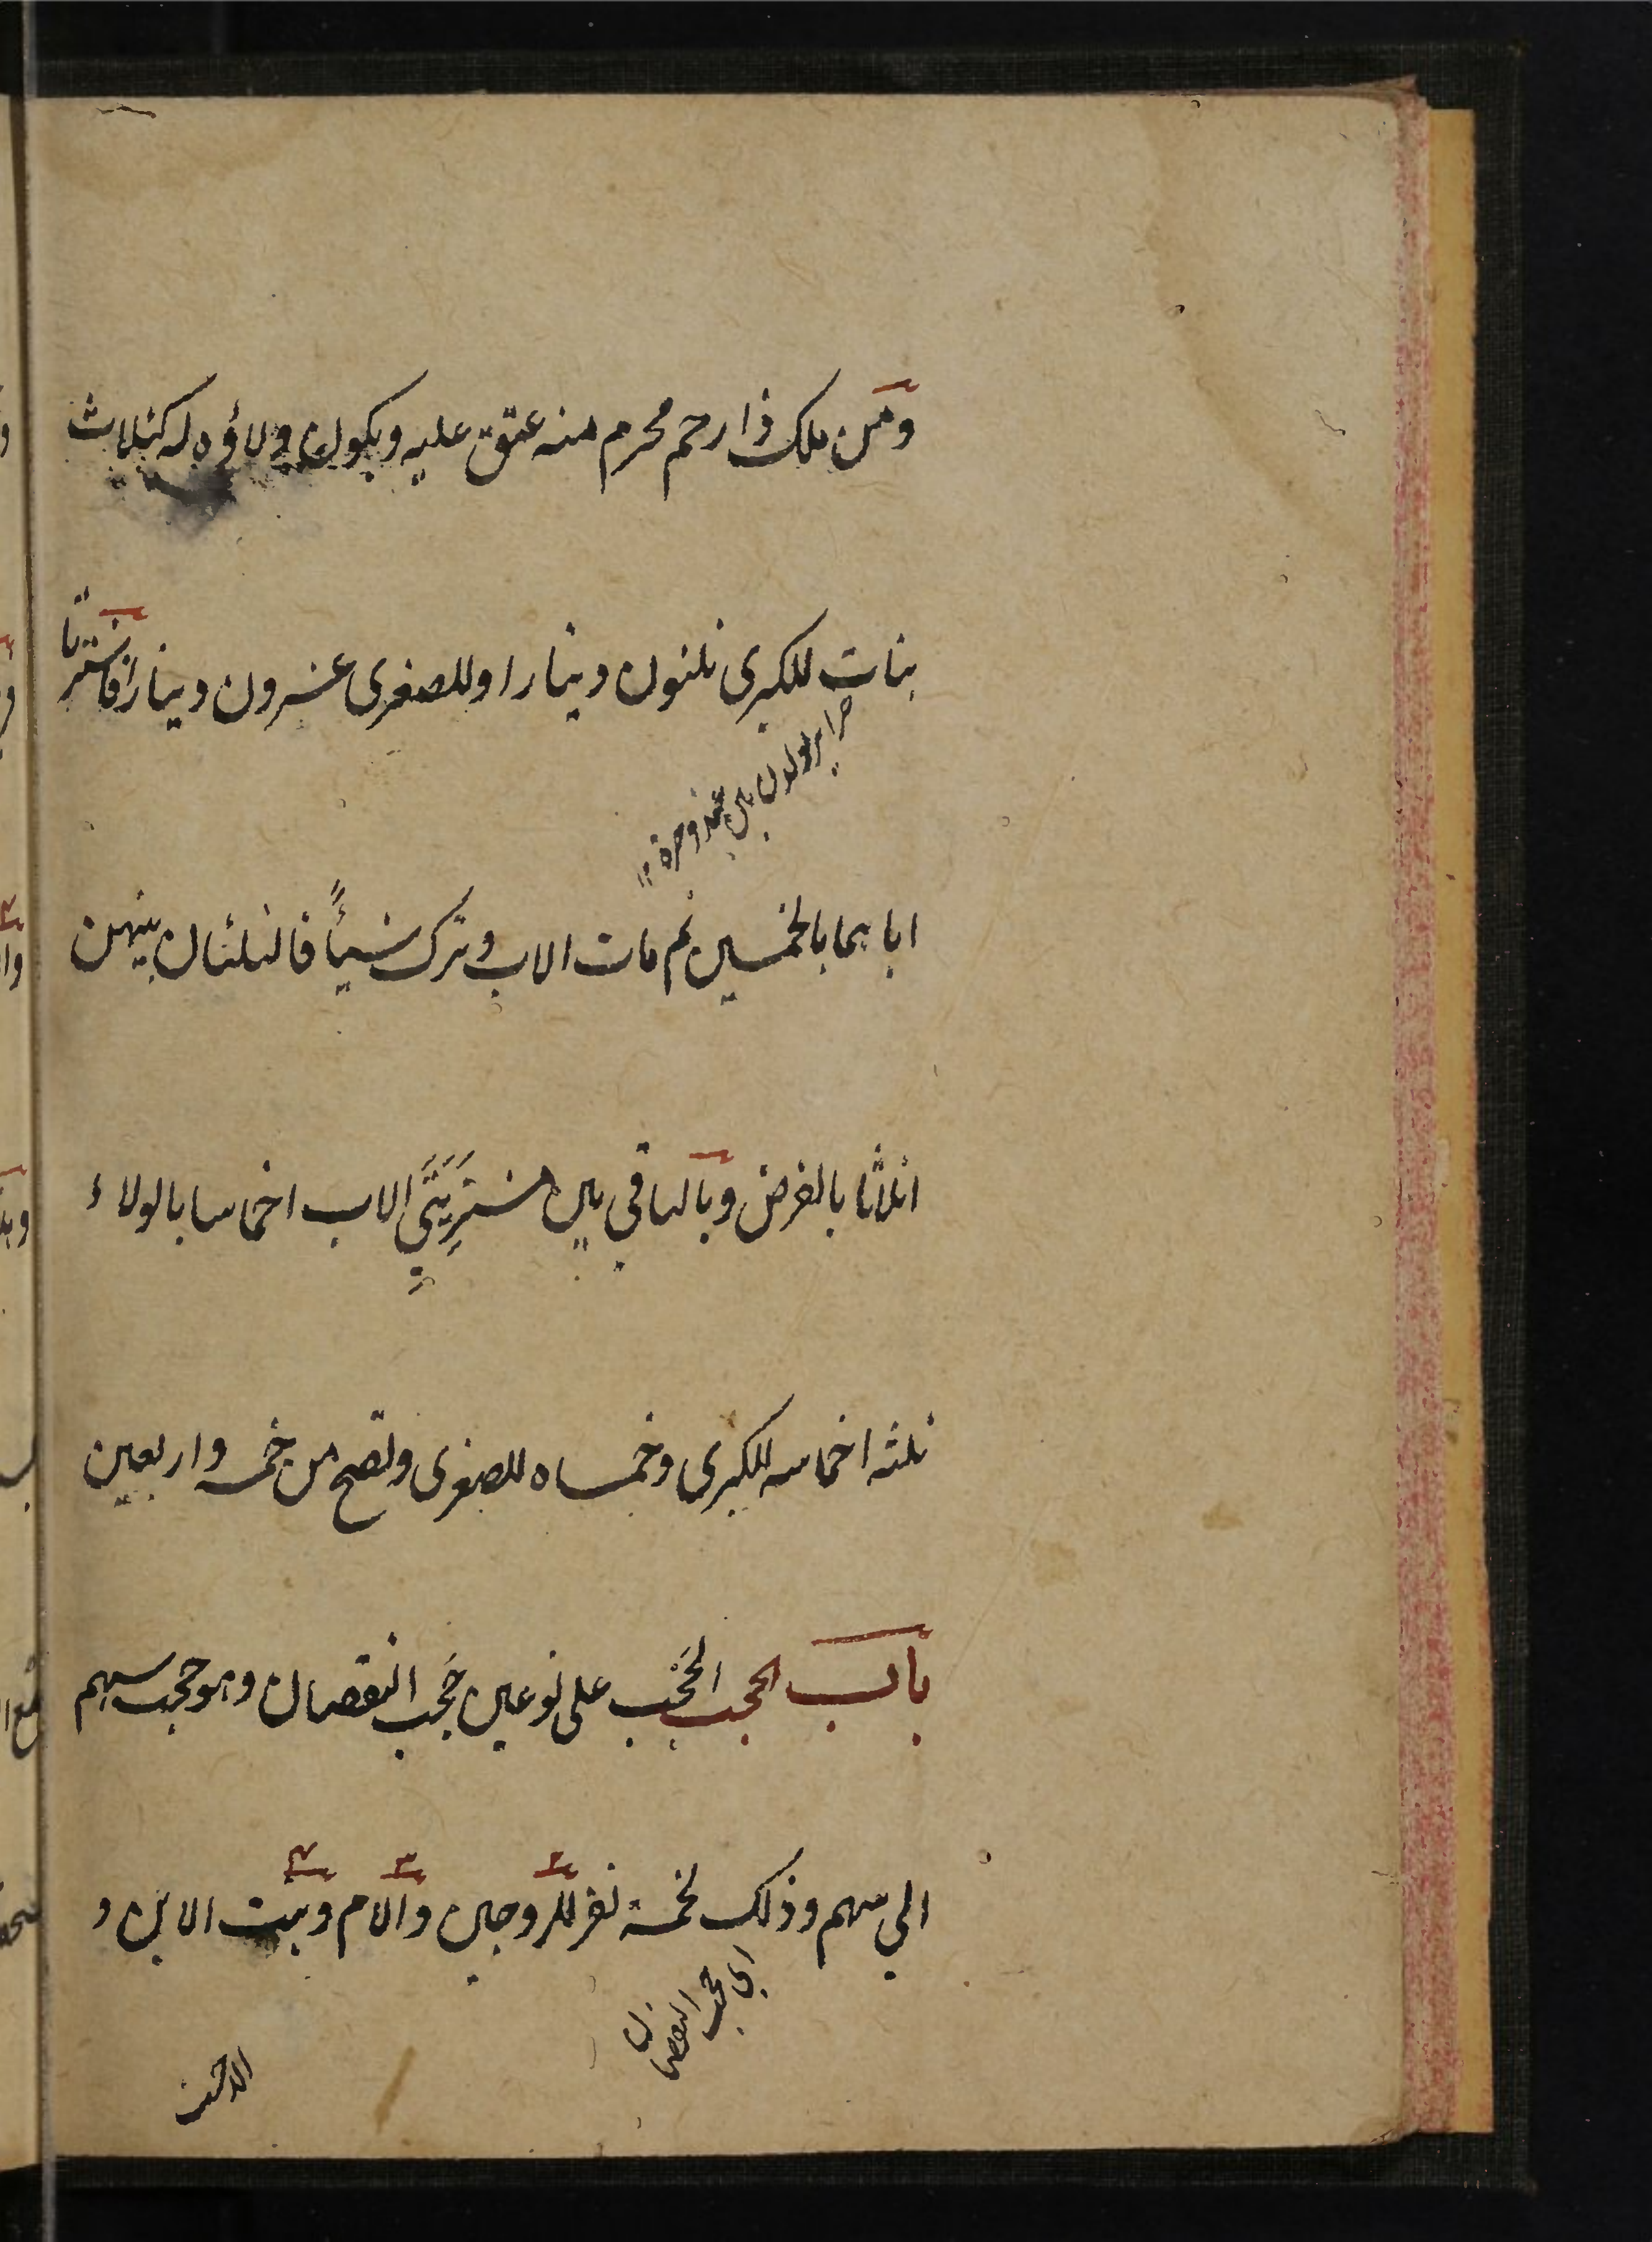 ومن ملك ذا رحم محرم منه عتق عليه ويكون ولاؤه له كثلاث
بنات للكبرى ثلثون دينارا وللصغرى عشرون دينارا فاشترتا
اباهما بالخمسين ثم مات الاب وترك شيئاً فالثلثان بينهن
اثلاثا بالفرض وبالباقي بين مشتريتي الاب اخماسا بالولاء
ثلثه اخماسه للكبرى وخمساه للصغرى وتصح من خمسه واربعين
باب الحجب الحَجْب على نوعين حَجب النقصان وهو حجب سهم
الي سهم وذلك لخمسة نفر للزوجين والام وبنت الابن و
اي حجب النقصان